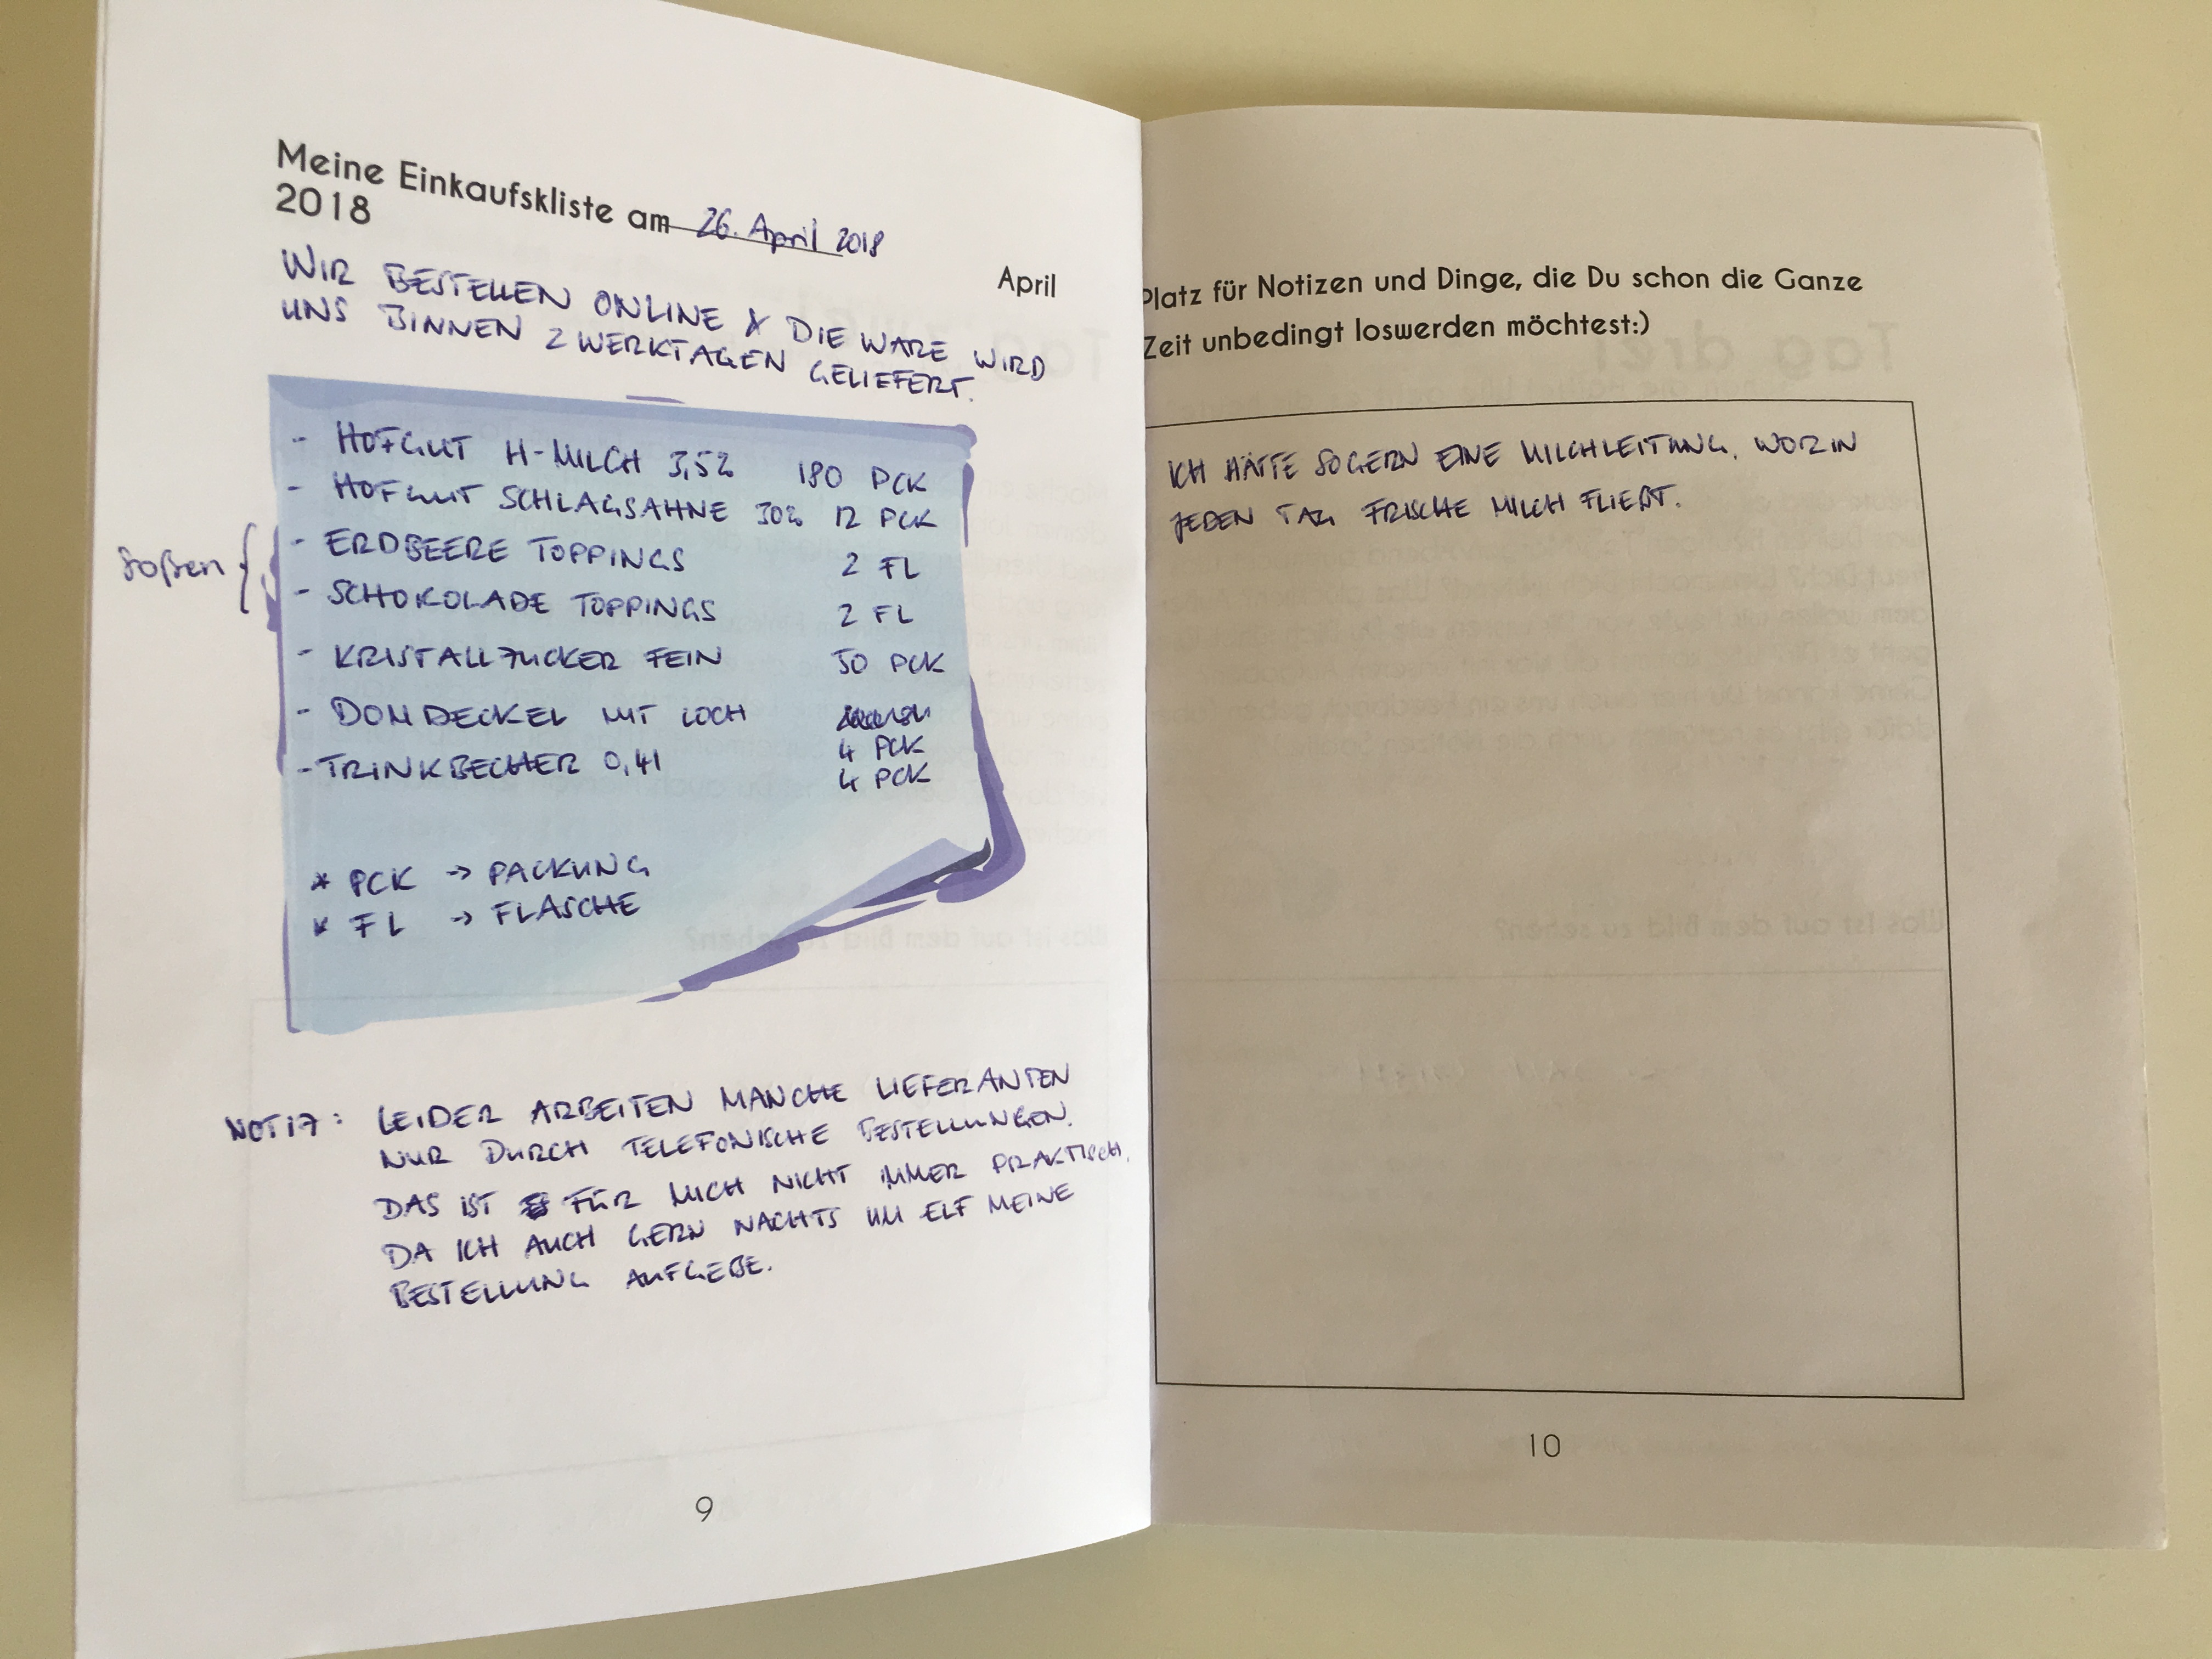 Meine Einkaufskliste am 26. April 2018 April
2018
WIR BESTELLEN ONLINE & DIE WARE WIRD
UNS BINNEN 2 WERKTAGEN GELIEFERT.
- HOFGUT H-MILCH 3,5% 180 PCK
- HOFGUT SCHLAGSAHNE 30% 12 PCK
Soßen { - ERDBEERE TOPPINGS 2 FL
- SCHOKOLADE TOPPINGS 2 FL
- KRISTALLZUCKER FEIN 50 PCK
- DOMDECKEL MIT LOCH 4 PCK
- TRINKBECHER 0,4l 4 PCK
* PCK → PACKUNG
* FL → FLASCHE
NOTIZ: LEIDER ARBEITEN MANCHE LIEFERANTEN
NUR DURCH TELEFONISCHE BESTELLUNGEN.
DAS IST FÜR MICH NICHT IMMER PRAKTISCH,
DA ICH AUCH GERN NACHTS UM ELF MEINE
BESTELLUNG AUFGEBE.
9
Platz für Notizen und Dinge, die Du schon die Ganze
Zeit unbedingt loswerden möchtest:)
ICH HÄTTE SOGERN EINE MILCHLEITUNG, WORIN
JEDEN TAG FRISCHE MILCH FLIEßT.
10